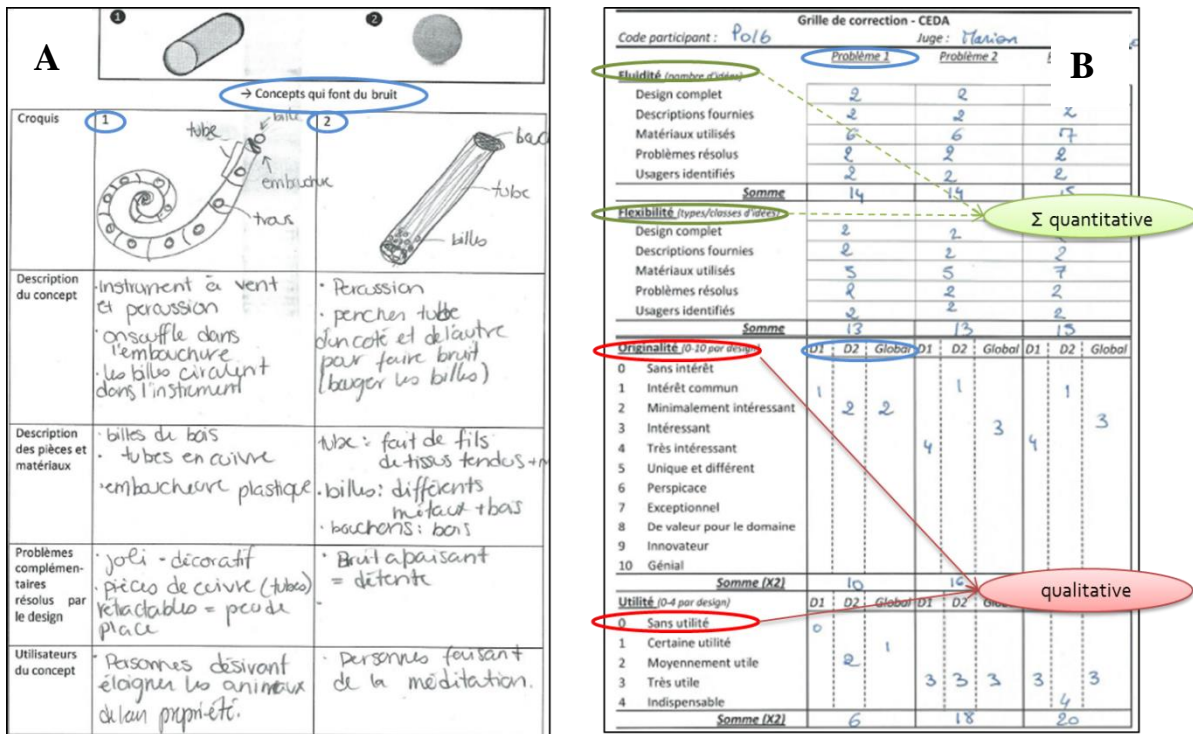 A
❶
❷
→ Concepts qui font du bruit
Croquis
1
2
tube
bille
embouchure
trous
tube
billes
Description du concept
· Instrument à vent
et percussion
· on souffle dans
l'embouchure
· Les billes circulent
dans l'instrument
· Percussion
· pencher tube
d'un coté et de l'autre
pour faire bruit
(bouger les billes)
Description
des pièces et
matériaux
· billes de bois
· tubes en cuivre
· embouchure plastique
tube : fait de fils
de tissus tendus
· billes : différents
métaux + bois
· bouchons : bois
Problèmes
complémen-
taires
résolus par
le design
· joli - décoratif
· pièces de cuivre (tubes)
rétractables = peu de
place
· Bruit apaisant
= détente
Utilisateurs
du concept
· Personnes désirant
éloigner les animaux
de leur propriété.
· Personnes faisant
de la méditation.
B
Grille de correction - CEDA
Code participant : P016 Juge : Marion
Problème 1 Problème 2
Fluidité (nombre d'idées)
Design complet 2 2
Descriptions fournies 2 2 2
Matériaux utilisés 6 6 7
Problèmes résolus 2 2 2
Usagers identifiés 2 2 2
Somme 14 14 15
Flexibilité (types/classes d'idées)
Design complet 2 2
Descriptions fournies 2 2 2
Matériaux utilisés 5 5 7
Problèmes résolus 2 2 2
Usagers identifiés 2 2 2
Somme 13 13 15
Σ quantitative
Originalité (0-10 par design) D1 D2 Global D1 D2 Global D1 D2 Global
0 Sans intérêt
1 Intérêt commun 1 1 1
2 Minimalement intéressant 2 2
3 Intéressant 3 3
4 Très intéressant 4 4
5 Unique et différent
6 Perspicace
7 Exceptionnel
8 De valeur pour le domaine
9 Innovateur
10 Génial
Somme (X2) 10 16
qualitative
Utilité (0-4 par design) D1 D2 Global D1 D2 D2 Global
0 Sans utilité 0
1 Certaine utilité 1
2 Moyennement utile 2
3 Très utile 3 3 3 3 3
4 Indispensable 4
Somme (X2) 6 18 20